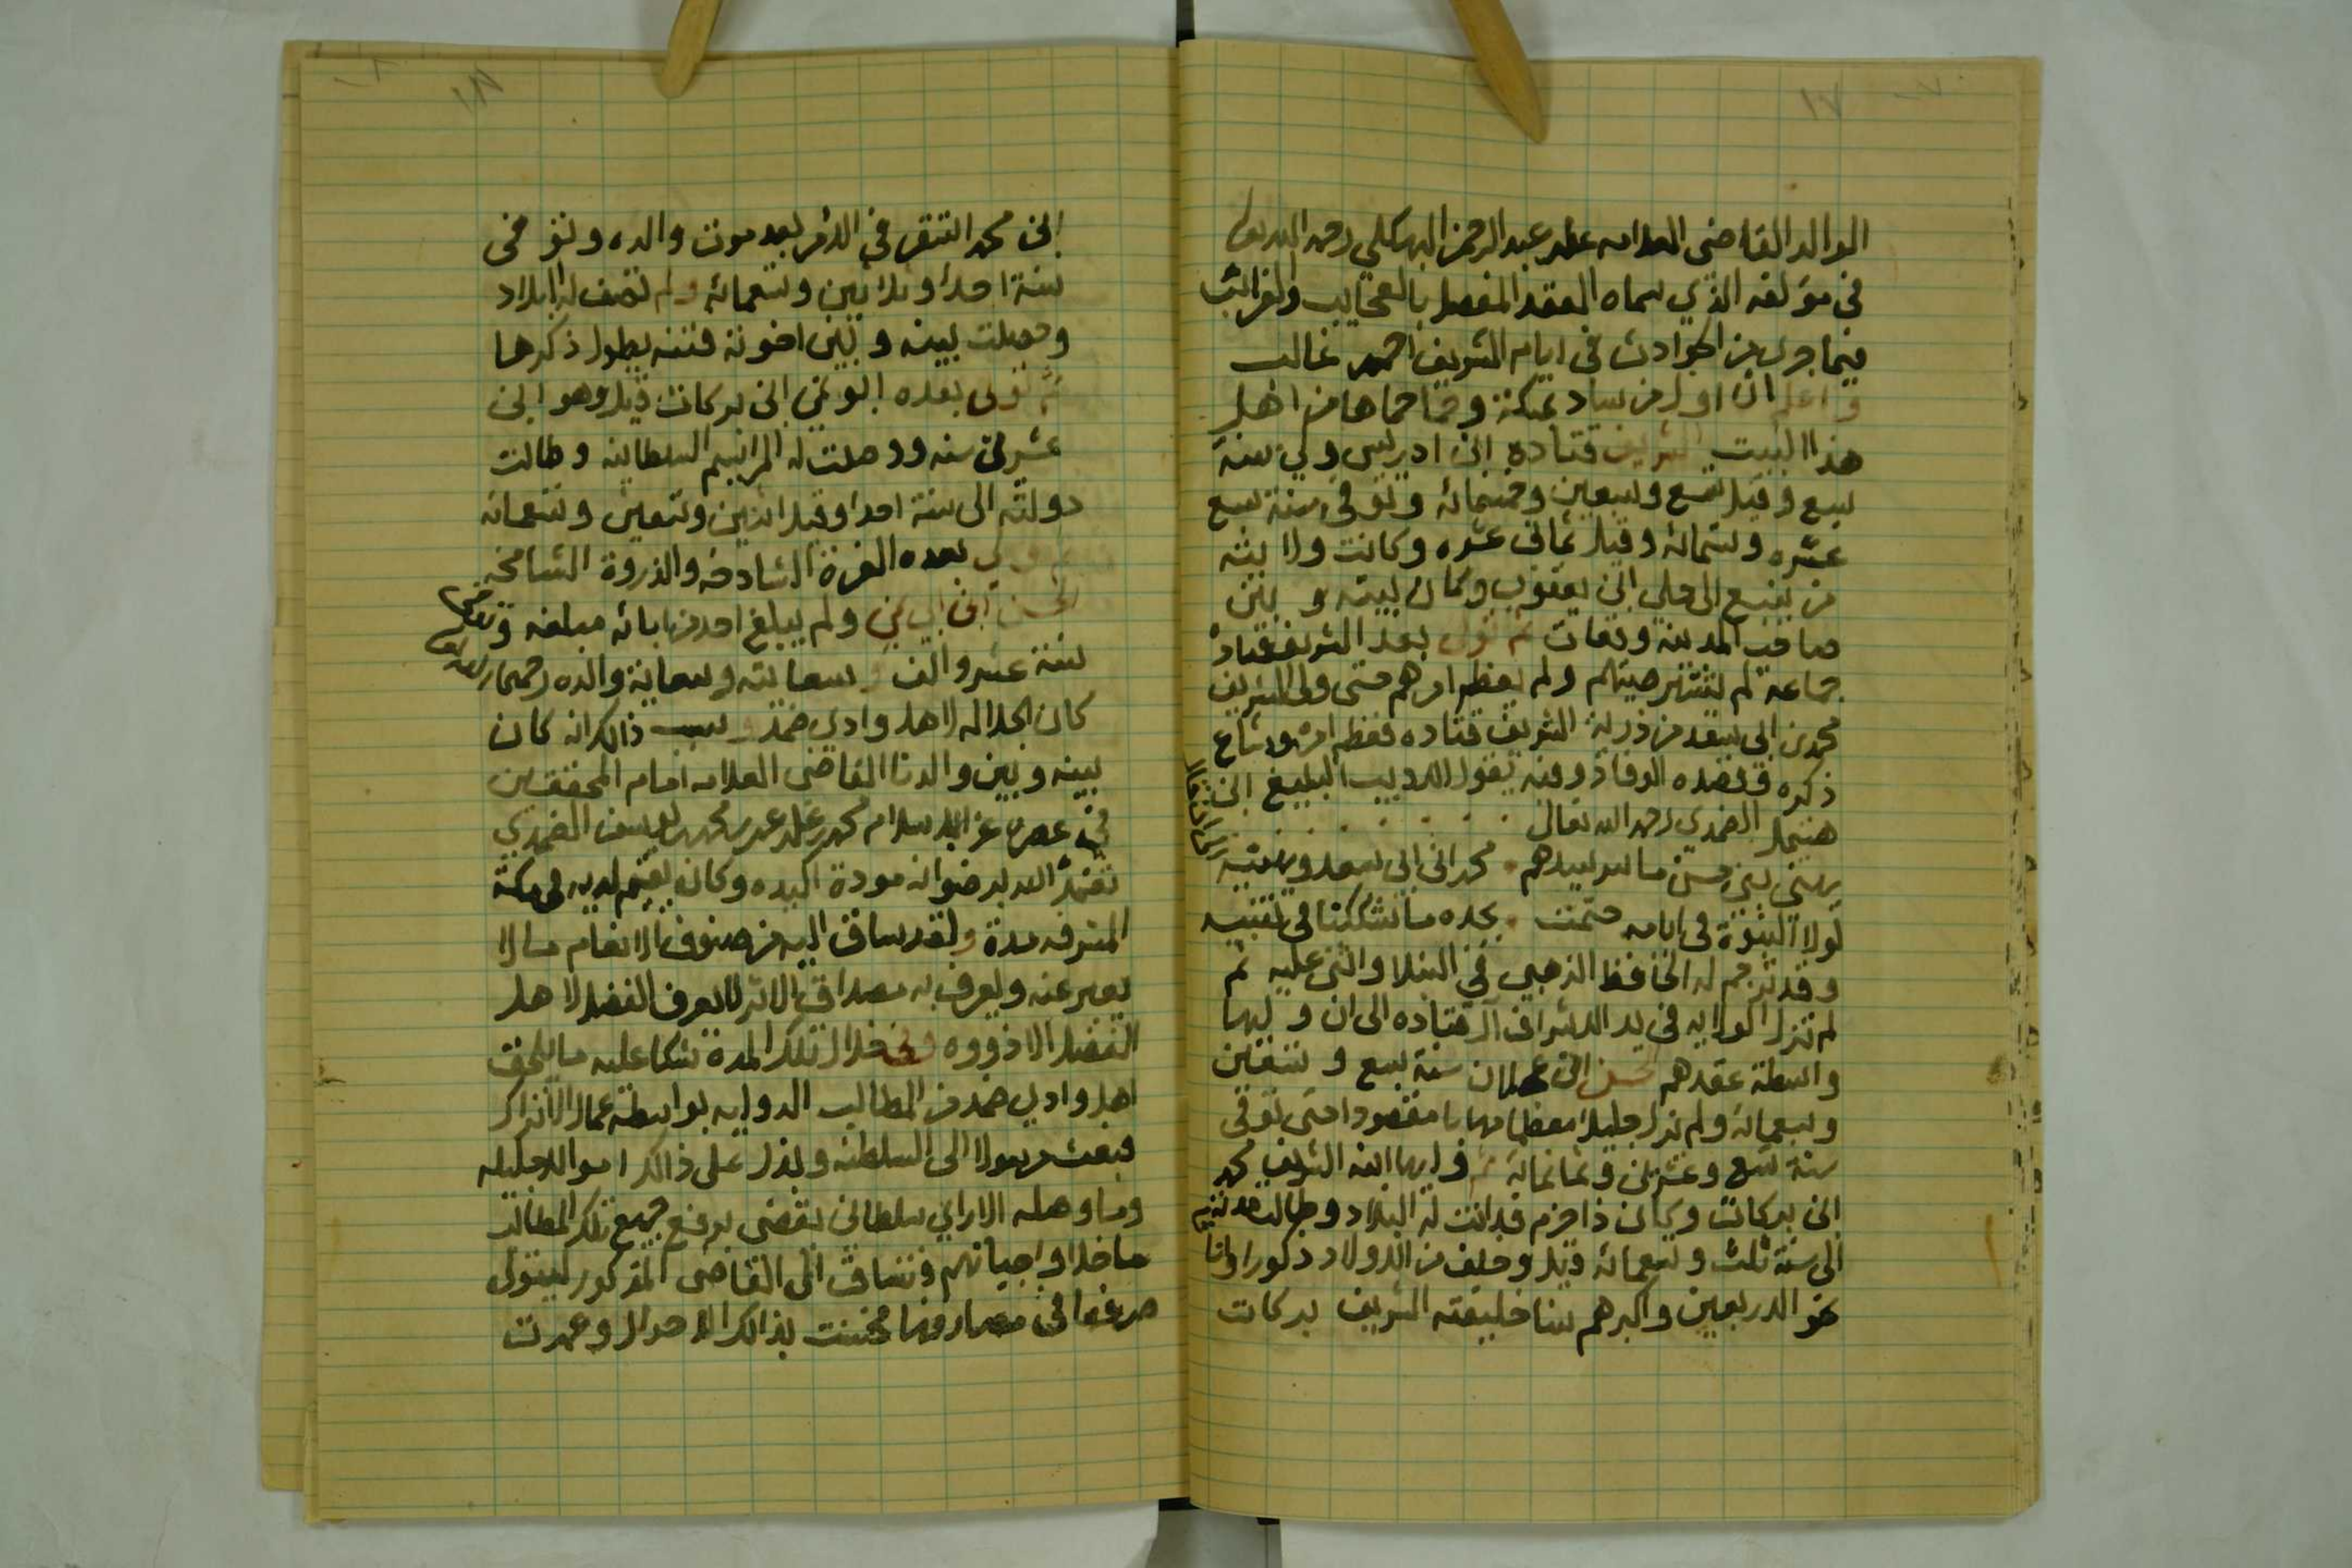 ١٧
الوالد القاضي العلامه علي عبد الرحمن البهكلي رحمه الله تعالى
في مؤلفه الذي سماه العقد المفصل بالعجايب والغرائب
فيما جرى من الحوادث في ايام الشريف احمد غالب
واعلم ان اول من ساد بمكة وحما حماها من اهل
هذا البيت الشريف قتاده ابن ادريس ولي سنة
سبع وقيل تسع وتسعين وخمسمائه وتوفي سنة سبع
عشره وستمائه وقيل ثماني عشره وكانت ولايته
من ينبع الى حلي ابن يعقوب وكان بينه وبين
صاحب المدينه وقعات ثم تولى بعد الشريف قتادة
جماعة لم يشتهر صيتهم ولم يعظم امرهم حتى ولي الشريف
محمد بن ابي سعد من ذرية الشريف قتاده فعظم امره وشاع
ذكره وقصده الوفاد وفيه يقول الاديب البليغ ابن
هتيمل الضمدي رحمه الله تعالى
يهني بني حسن ما سر سيدهم محمد ابن ابي سعد ويهنيه
لولا النبوة في ايامه ختمت بجده ما تشككنا في تنبيه
وقد ترجم له الحافظ الذهبي في النبلا واثنى عليه ثم
لم تزل الولايه في يد الاشراف آل قتاده الى ان وليها
واسطة عقدهم الحسن ابن عجلان سنة سبع وتسعين
وسبعمائه ولم يزل جليلا معظما مهابا مقصودا حتى توفي
سنة تسع وعشرين وثمانمائة ثم وليها ابنه الشريف محمد
ابن بركات وكان ذا حزم فدانت له البلاد وطالت مدته
الى سنة ثلث وتسعمائه وقيل وخلف من الاولاد ذكورا واناثا
نحو الاربعين واكبرهم سنا خليفته الشريف بركات
١٨
ابن محمد استقر في الامر بعد موت والده وتوفي
سنة احدا وثلاثين وتسعمائه ولم تصف له البلاد
وحصلت بينه وبين اخوته فتنه يطول ذكرها
ثم تولى بعده ابو نمي ابن بركات وهو ابن
عشرين سنه ووصلت له المراسيم السلطانيه وطالت
دولته الى سنة احدا وقيل اثنين وتسعين وتسعمائه
بعده الغرة الشادخه والذروة الشامخه
الحسن ابن ابي نمي ولم يبلغ احد من ابائه مبلغه وتوفي
سنة عشر والف وبسعايته وسعاية والده رحمهما الله تعالى
كان الجلاله لاهل وادي ضمد وسبب ذالك انه كان
بينه وبين والدنا القاضي العلامه امام المحققين
في عصره عز الاسلام محمد بن علي عمر محمد يوسف الضمدي
تغمده الله برضوانه مودة اكيده وكان يقيم لديه في مكة
المشرفه مدة ولقد ساق اليه من صنوف الانعام ما لا
يعبر عنه ويعرف به مصداق الاثر لا يعرف الفضل لاهل
الفضل الا ذووه وفي خلال تلك المدة شكا عليه ما يلحق
اهل وادي ضمد من المطالب الدوليه بواسطة عمال الاتراك
فبعث رسولا الى السلطنه وبذل على ذالك اموالا جليله
وما وصله الا براي سلطاني يقضي برفع جميع تلك المطالب
ما خلا واجباتهم وتساق الى القاضي المذكور ليتولى
صرفها في مصارفها فحسنت بذالك الاحوال وعمرت